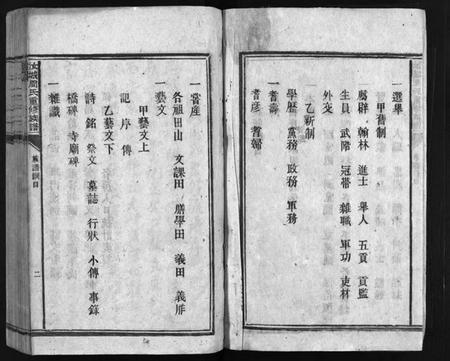 一選舉
甲舊制
薦辟 翰林 進士 舉人 五貢 貢監
生員 武階 冠帶 雜職 軍功 吏材
外交
乙新制
學歷 黨務 政務 軍務
一耆壽
耆彥 耆婦
一嘗産
各祖田山 文課田 膳學田 義田 義厝
一藝文
甲藝文上
記 序 傳
乙藝文下
詩 銘 祭文 墓誌 行狀 小傳 事錄
橋碑 寺廟碑
一雜識
汝城周氏重修族譜
族譜綱目
二